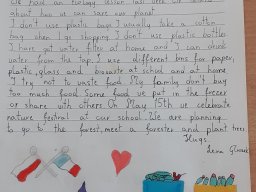 We had an ecology lesson last week. We
about how we can save our planet.
I don't use plastic bags. I usually take a cotton
bag when I go shopping. I don't use plastic bottles
I have got water filter at home and I can drink
water from the tap. I use different bins for paper,
plastic, glass and biowaste at school and at home.
I try not to waste food. My family don't buy
too much food. Some food we put in the freezer
or share with others. On May 15th we celebrate
nature festival at our school. We are planning
to go to the forest, meet a forester and plant trees.
Hugs,
Lena